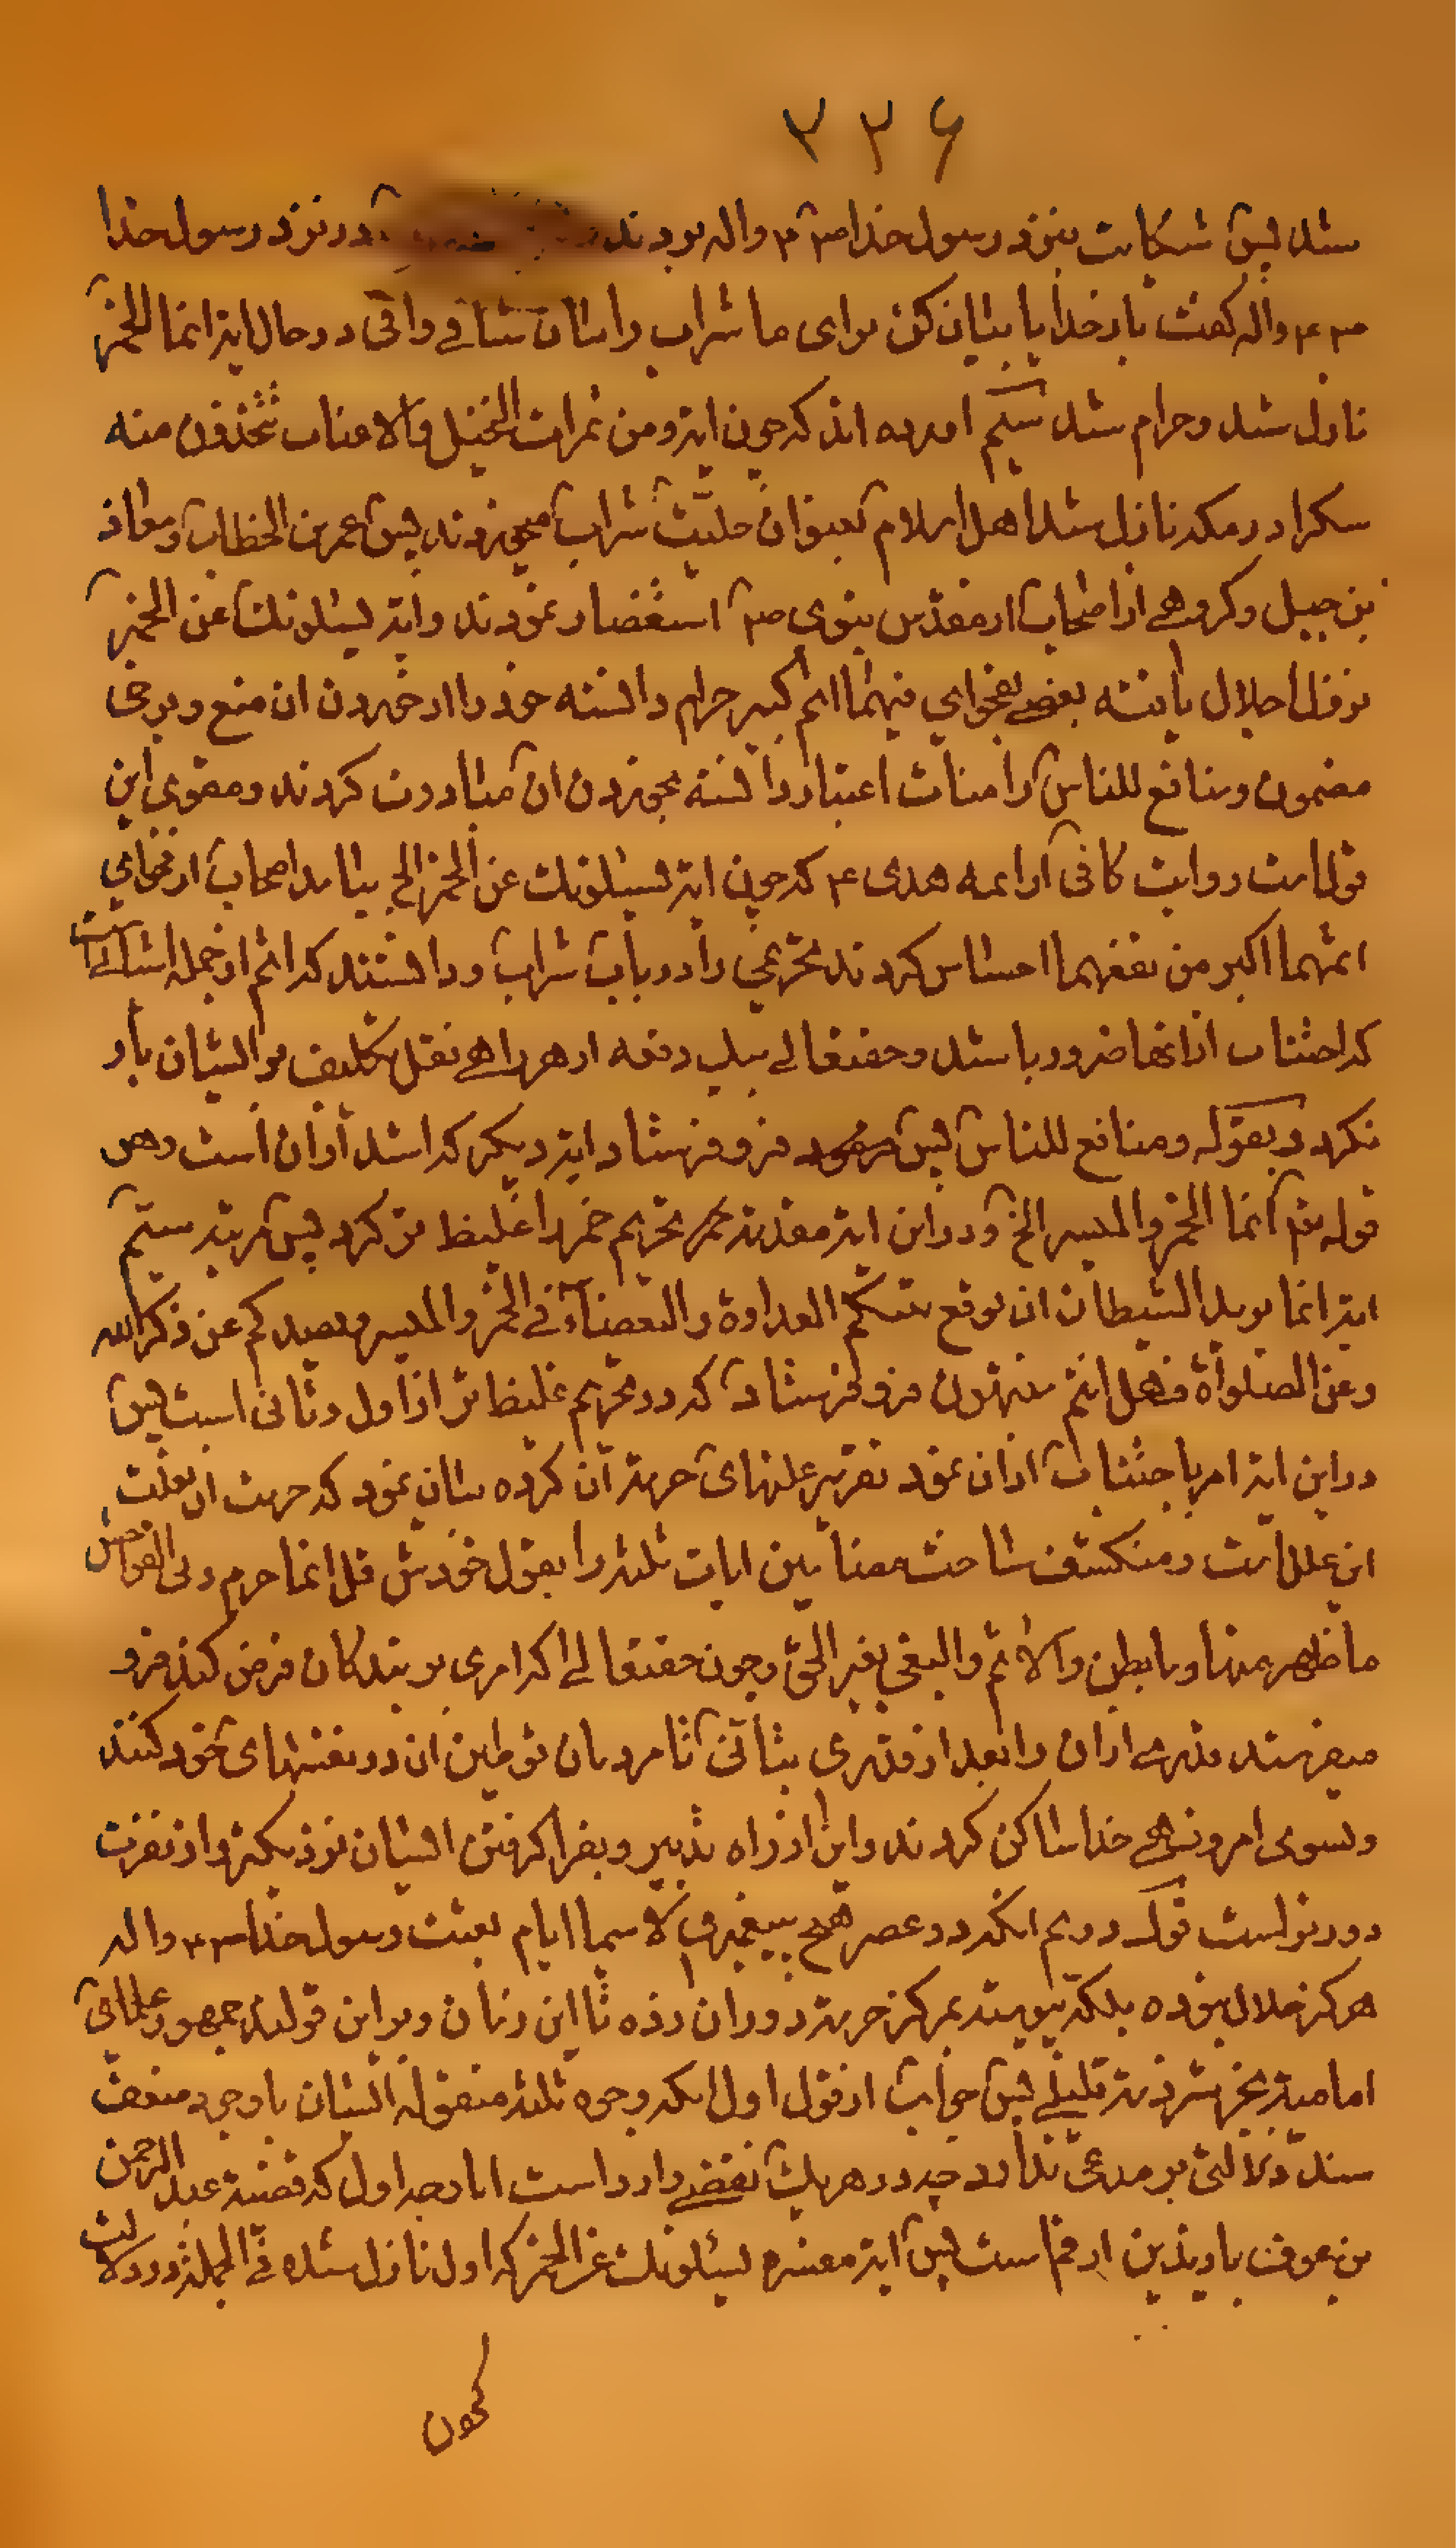 ۳۲۶
شد پس شکایت بنزد رسول خدا ص ع واله بردند در نزد رسول خدا
ص ع واله گفت بار خدایا بیان کن برای ما شراب را بیان شافی وافی در حال ایة انما الخمر
نازل شد و حرام شد سیم آورده اند که چون ایة و من ثمرات النخیل والاعناب تتخذون منه
سکرا در مکه نازل شد اهل اسلام بعنوان حلیت شراب میخوردند پس عمر بن الخطاب و معاذ
بن جبل و کروهی از اصحاب از مقدس نبوی ص استفسار نمودند و ایة یسئلونک عن الخمر
نزول اجلال یافته بعضی بفحوای فیهما اثم کبیر حرام دانسته خود را از خوردن ان منع و برخی
مضمون و منافع للناس را مناط اعتبار دانسته بخوردن ان مبادرت کردند و مقوی این
قول است روایت کافی از ائمه هدی ع که چون ایة یسئلونک عن الخمر الخ بیامد اصحاب از فحوای
اثمهما اکبر من نفعهما احساس کردند تحریمی را در باب شراب و دانستند که اثم از جمله اشیائی است
که اجتناب از انها ضرور باشد و حقتعالی بیک دفعه از هر راهی نقل تکلیف بر ایشان بار
نکرد و بقوله و منافع للناس پس فرو فرستاد ایة دیکر که اشد از ان است و هی
قوله تع انما الخمر والمیسر الخ و در این ایة تحریم خمر را غلیظ تر کرد پس مرتبه سیم
ایة انما یرید الشیطان ان یوقع بینکم العداوة والبغضاء فی الخمر والمیسر ویصدکم عن ذکر الله
وعن الصلوة فهل انتم منتهون فرو فرستاد که در تحریم غلیظ تر از اول و ثانی است پس
در این ایة امر باجتناب از ان نمود تقریر علتهای حرمت آن کرده بیان نمود که حرمت ان بعلت
این علل است و منکشف ساخت مضامین ایات ثلثه را بقول خودش قل انما حرم ربی الفواحش
ما ظهر منها وما بطن والاثم والبغی بغیر الحق و چون حقتعالی اکر امری بر بندکان فرض کند فرو
میفرستد قدری از ان را بعد از قدری بتأنی تا مردمان توطین ان در نفسهای خود کنند
و بسوی امر و نهی خدا ساکن کردند و این از راه تدبیر و بفرا کرفتن ایشان نزدیکتر و از نفرت
دورتر است قول دویم انکه در عصر هیچ پیغمبری لا سیما ایام بعثت رسول خدا ص ع واله
هرکز حلال نبوده بلکه پیوسته بمرکز حرمت دوران زده تا این زمان و بر این قولند جمهور علمای
امامیه بجز شرذمه قلیلی پس جواب از قول اول انکه وجوه ثلثه منقوله ایشان با وجود ضعف
سند دلالتی بر مدعی ندارد چه در هر یک نقضی وارد است اما وجه اول که قضیه عبد الرحمن
بن عوف یا زید بن ارقم است پس ایة یسئلونک عن الخمر که اول نازل شده فی الجمله در دلالت
کردن